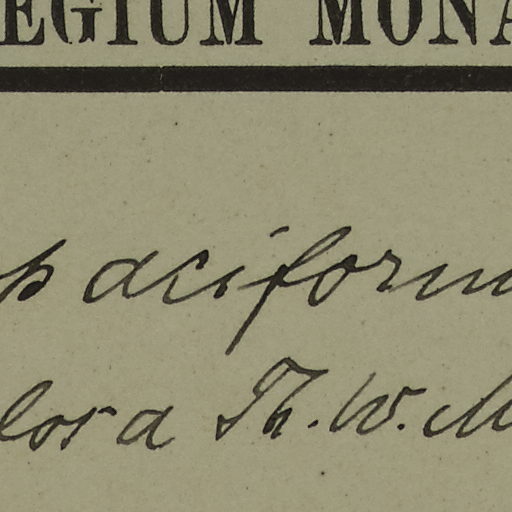 EGIUM MONA
s aciform
lora Th. W. M